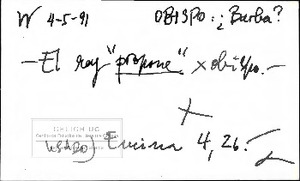 W 4-5-91 OBISPO: ¿Barba?
- El rey "propone" x obispo.-
x
Encina 4, 26.